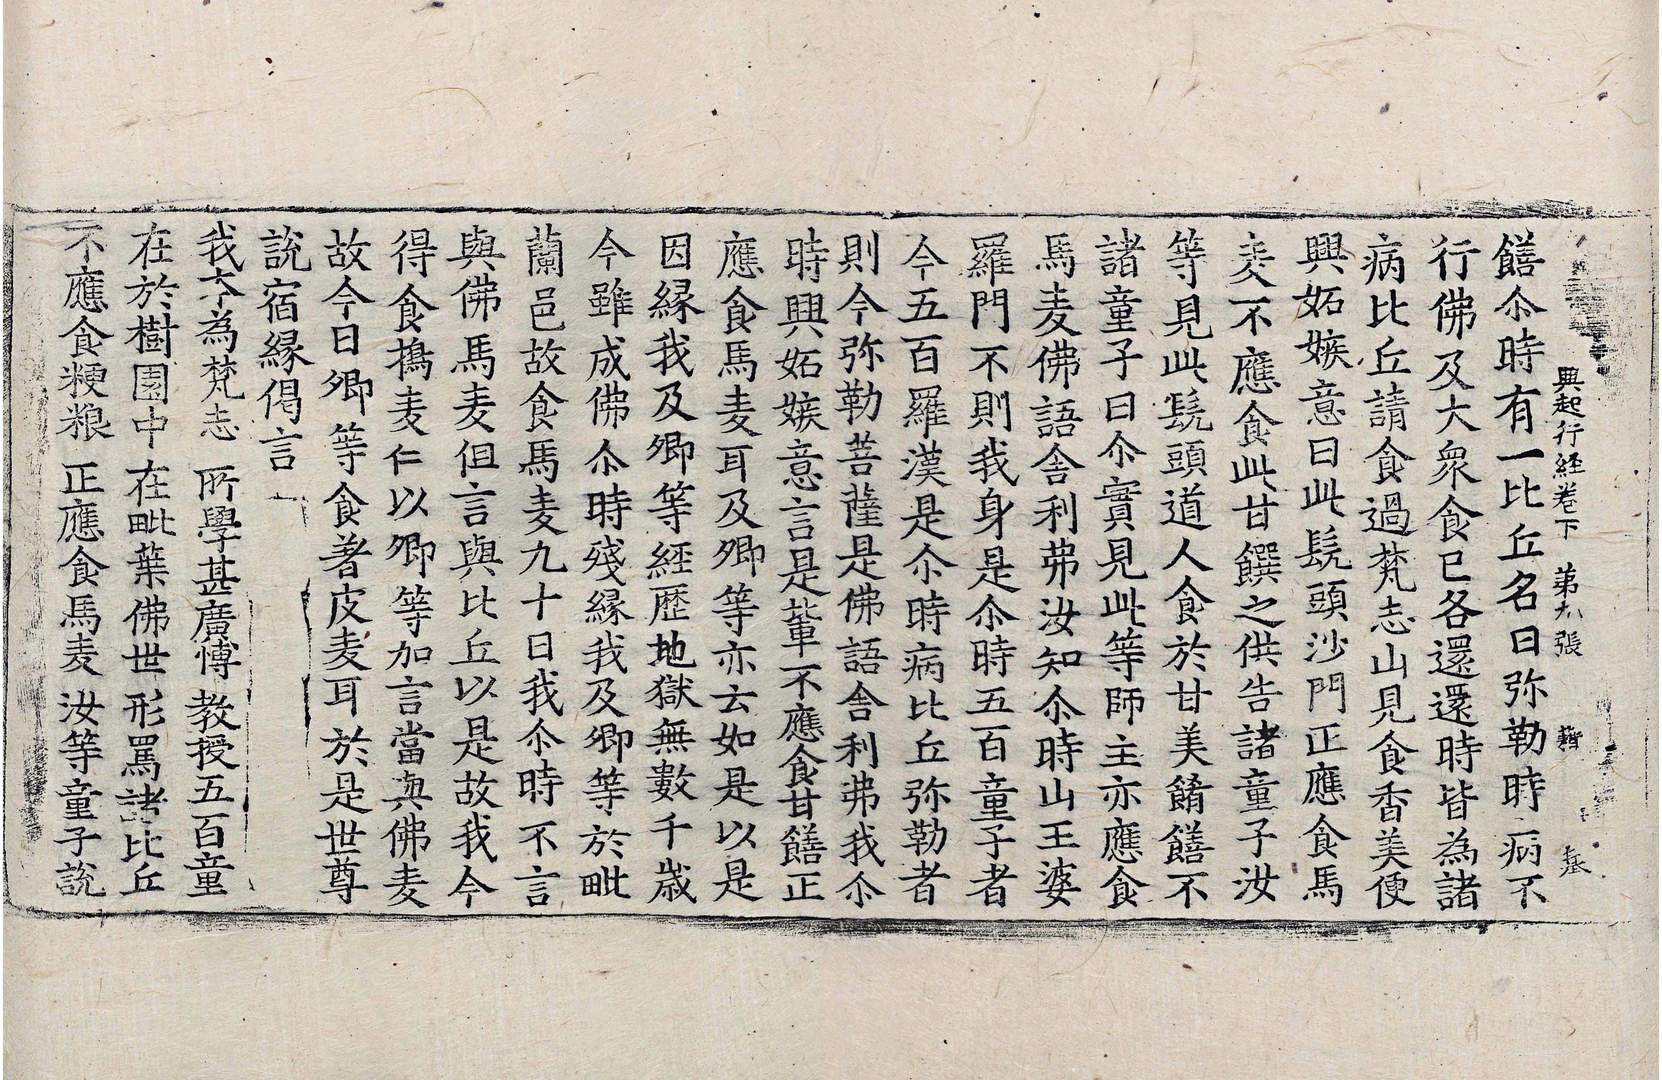 興起行経卷下 第九張 籍
饍尒時有一比丘名曰弥勒時病不
行佛及大衆食已各還還時皆為諸
病比丘請食過梵志山見食香美便
興妬嫉意曰此髡頭沙門正應食馬
麦不應食此甘饌之供告諸童子汝
等見此髡頭道人食於甘美餚饍不
諸童子曰尒實見此等師主亦應食
馬麦佛語舎利弗汝知尒時山王婆
羅門不則我身是尒時五百童子者
今五百羅漢是尒時病比丘弥勒者
則今弥勒菩薩是佛語舎利弗我尒
時興妬嫉意言是軰不應食甘饍正
應食馬麦耳及卿等亦云如是以是
因縁我及卿等経歴地獄無數千歳
今雖成佛尒時殘縁我及卿等於毗
蘭邑故食馬麦九十日我尒時不言
與佛馬麦但言與比丘以是故我今
得食擣麦仁以卿等加言當與佛麦
故今日卿等食著皮麦耳於是世尊
說宿縁偈言
我夲為梵志 所學甚廣愽 教授五百童
在於樹園中 在毗葉佛世 形罵諸比丘
不應食粳粮 正應食馬麦 汝等童子說